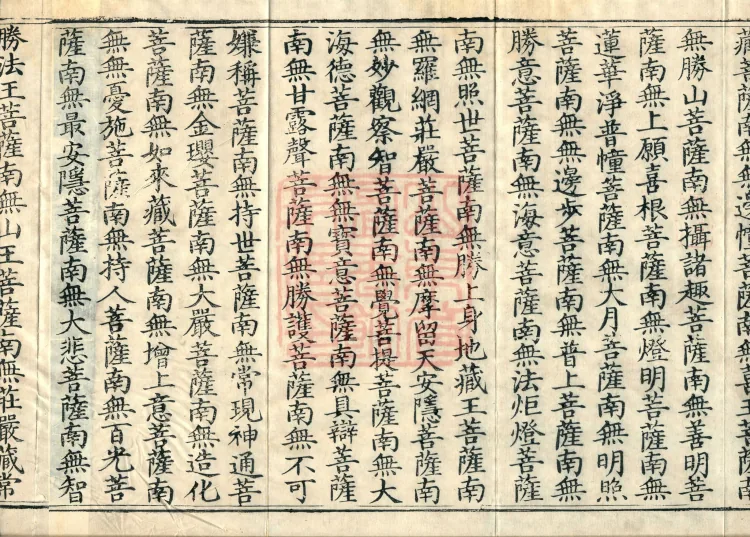 藏菩薩南無無邊憧菩薩南無喜王菩薩南
無勝山菩薩南無攝諸趣菩薩南無善明菩
薩南無上願喜根菩薩南無燈明菩薩南無
蓮華淨普憧菩薩南無大月菩薩南無明照
菩薩南無無邊步菩薩南無普上菩薩南無
勝意菩薩南無海意菩薩南無法炬燈菩薩
南無照世菩薩南無勝上身地藏王菩薩南
無羅網莊嚴菩薩南無摩留天安隱菩薩南
無妙觀察智菩薩南無覺菩提菩薩南無大
海德菩薩南無無寶意菩薩南無具辯菩薩
南無甘露聲菩薩南無勝護菩薩南無不可
嫌稱菩薩南無持世菩薩南無常現神通菩
薩南無金瓔菩薩南無大嚴菩薩南無造化
菩薩南無如來藏菩薩南無增上意菩薩南
無無憂施菩薩南無持人菩薩南無百光菩
薩南無最安隱菩薩南無大悲菩薩南無智
勝法王菩薩南無山王菩薩南無莊嚴藏常